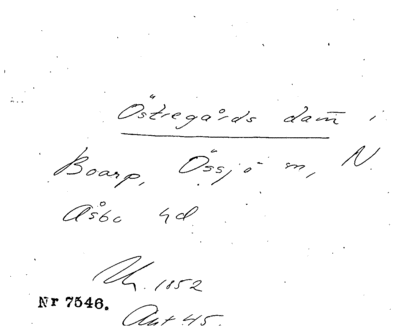 Östregårds dam̄ i
Boarp, Össjö sn, N.
Åsbo hd
Uk. 1852
Nr 7546.
Akt 45.